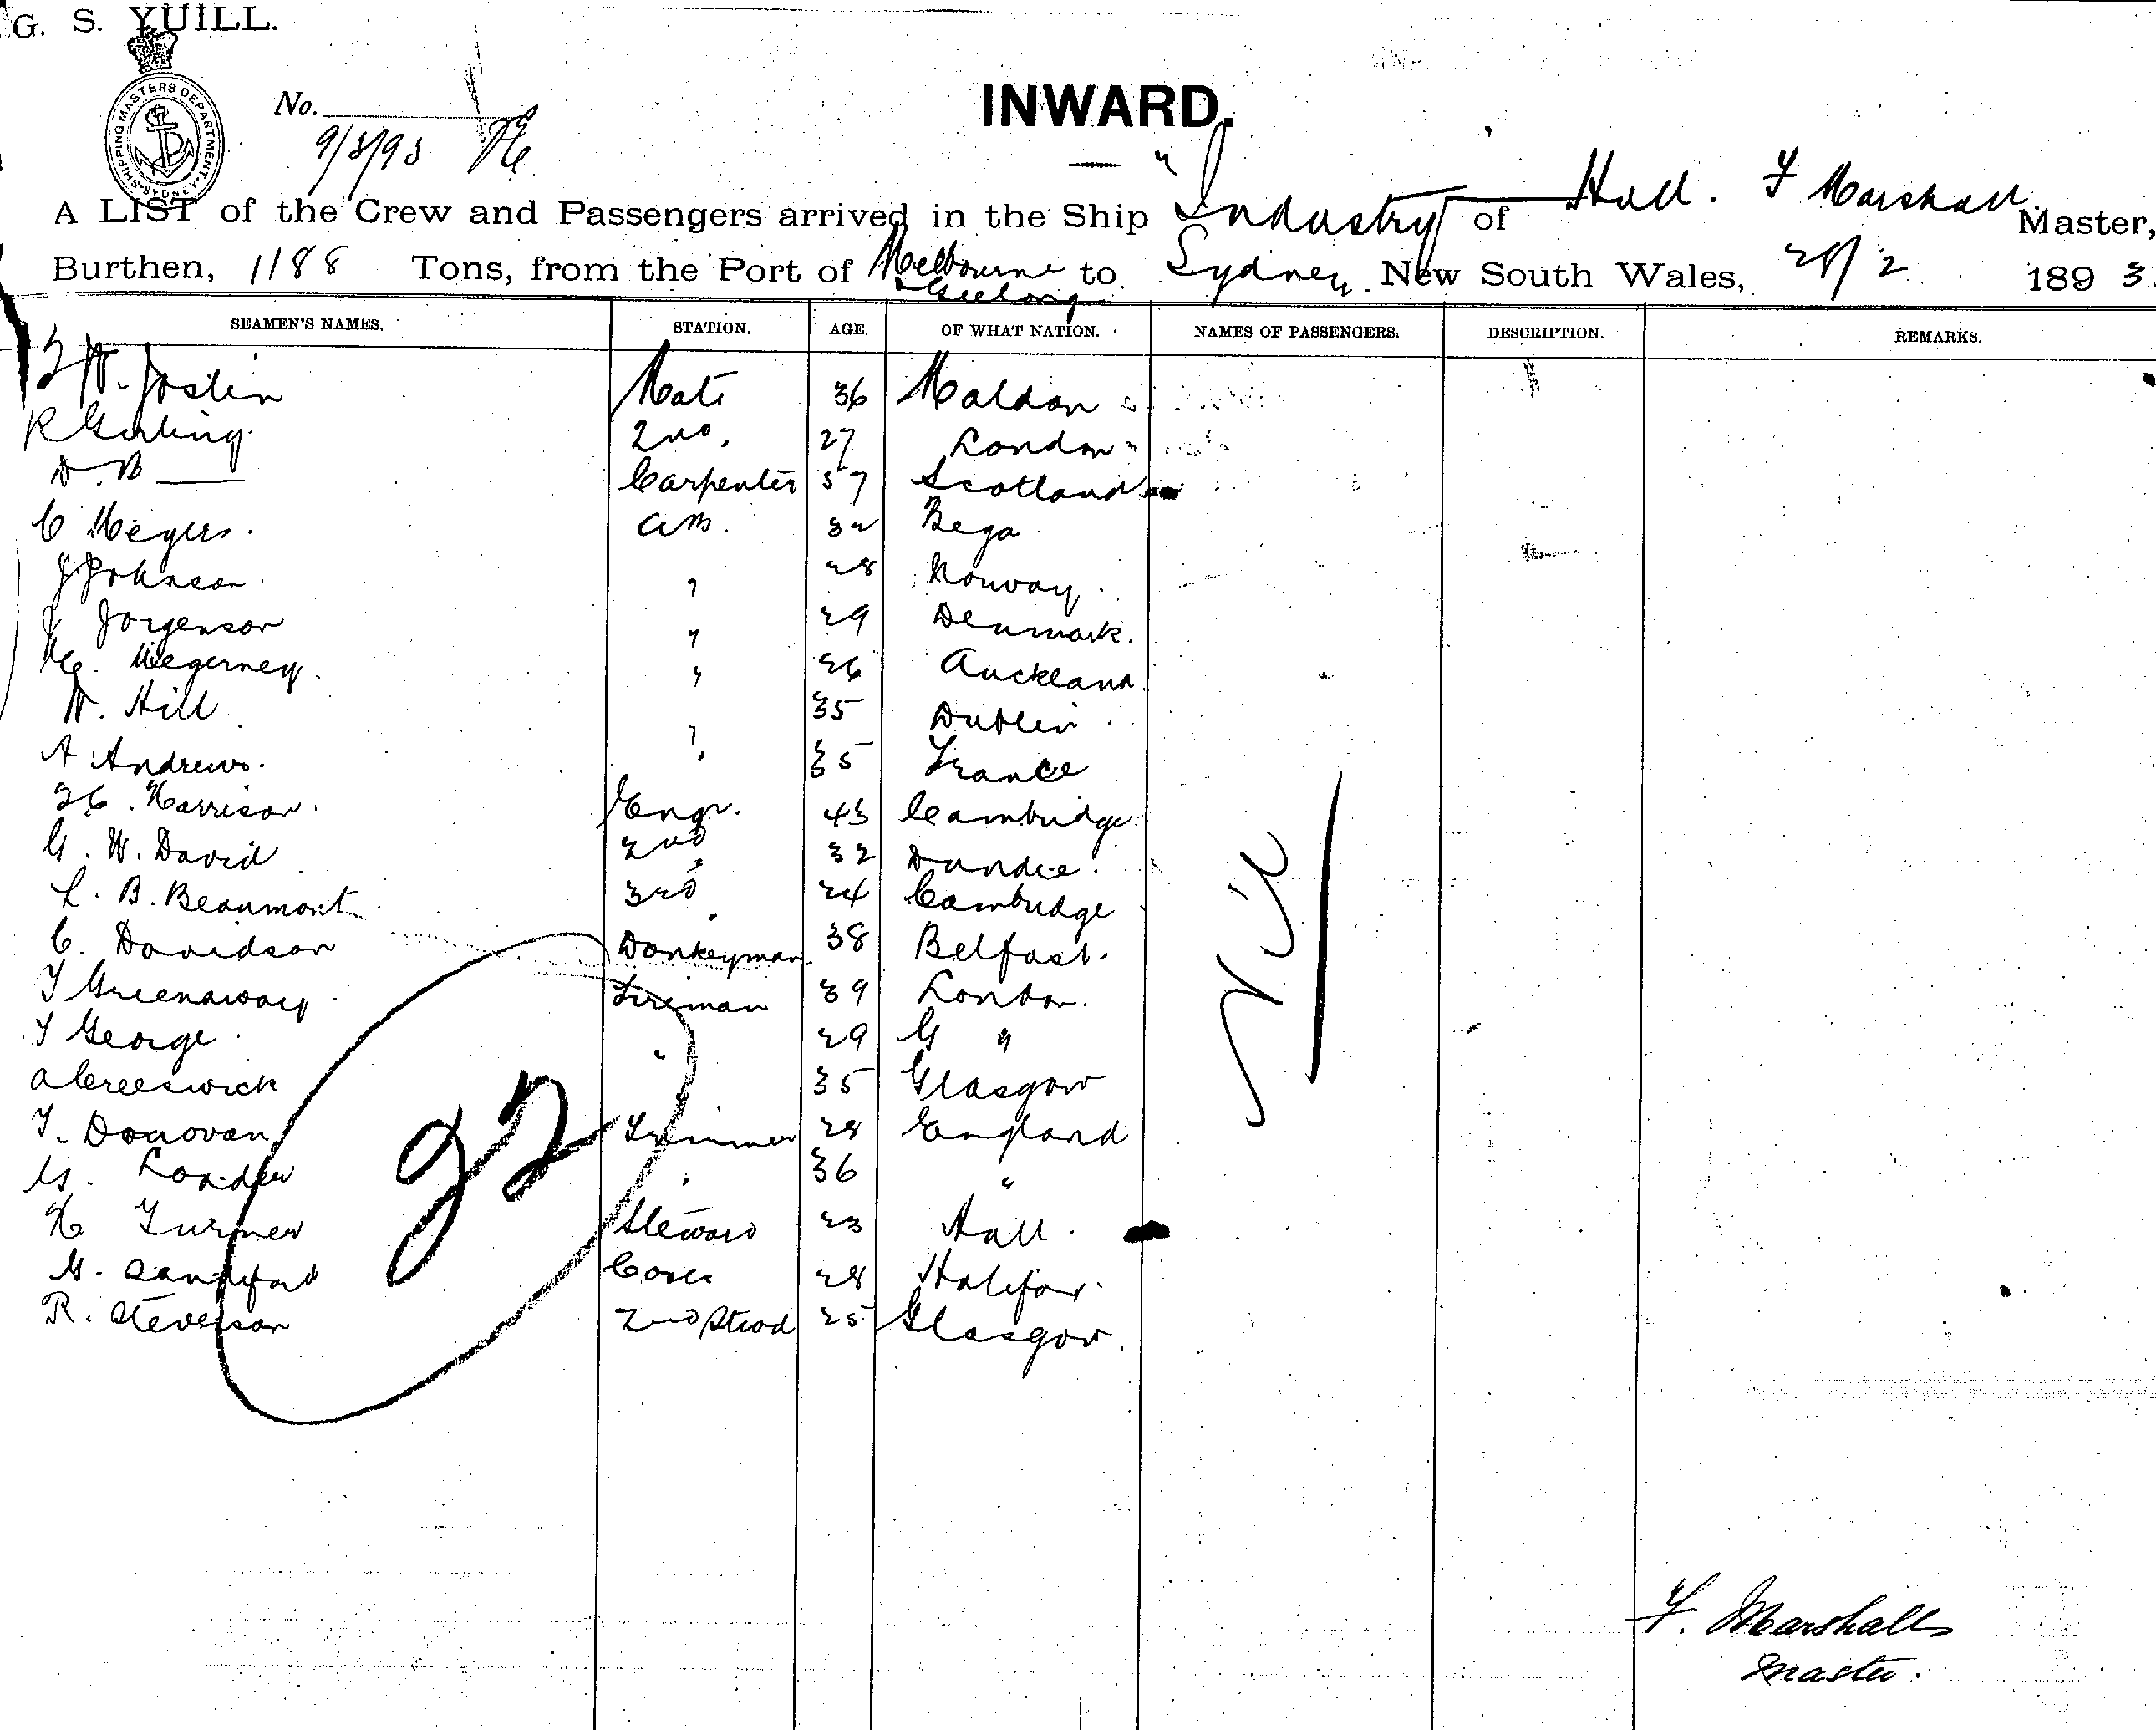 G. S. YUILL.
SHIPPING MASTERS DEPARTMENT SYDNEY
No.
INWARD.
9/3/93
A LIST of the Crew and Passengers arrived in the Ship "Industry of Hull. F Marshall Master,
Burthen, 1188 Tons, from the Port of Melbourne to Sydney New South Wales, 28/2 1893
Geelong
SEAMEN'S NAMES. STATION. AGE. OF WHAT NATION. NAMES OF PASSENGERS. DESCRIPTION. REMARKS.
W. Joslin Mate 36 Maldon
R Girling 2nd. 27 London
D. B Carpenter 57 Scotland
C Meyers. AB. 32 Bega
J Johnson " 28 Norway
J Jorgenson " 29 Denmark.
" 26 Auckland
W. Hill 35 Dublin
A Andrews. " 35 France
H. Harrison. Engr. 43 Cambridge
G. W. David 2nd 32 Dundee.
L. B. Beaumont 3rd 24 Cambridge
C. Davidson Donkeyman. 38 Belfast.
T Greenaway Fireman 39 London.
T George " 29 G "
A Creeswick 35 Glasgow
T. Donovan Trimmer 28 England
G. 36 "
H Turner Steward 23 Hull.
G. Sandford Cook 28 Halifax
R. Stevenson 2nd Stwd 25 Glasgow.
22
Nil
F. Marshall
Master.